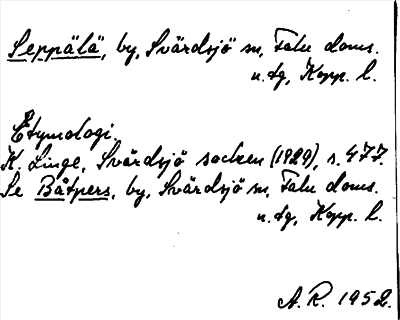 Seppälä, by, Svärdsjö sn, Falu doms.
u. tg, Kopp. l.
Etymologi.
K. Linge, Svärdsjö socken (1929), s. 477.
Se Båtpers, by, Svärdsjö sn, Falu doms.
u. tg, Kopp. l.
A. R. 1952.